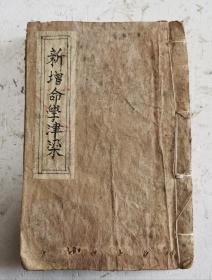 新增命學津梁